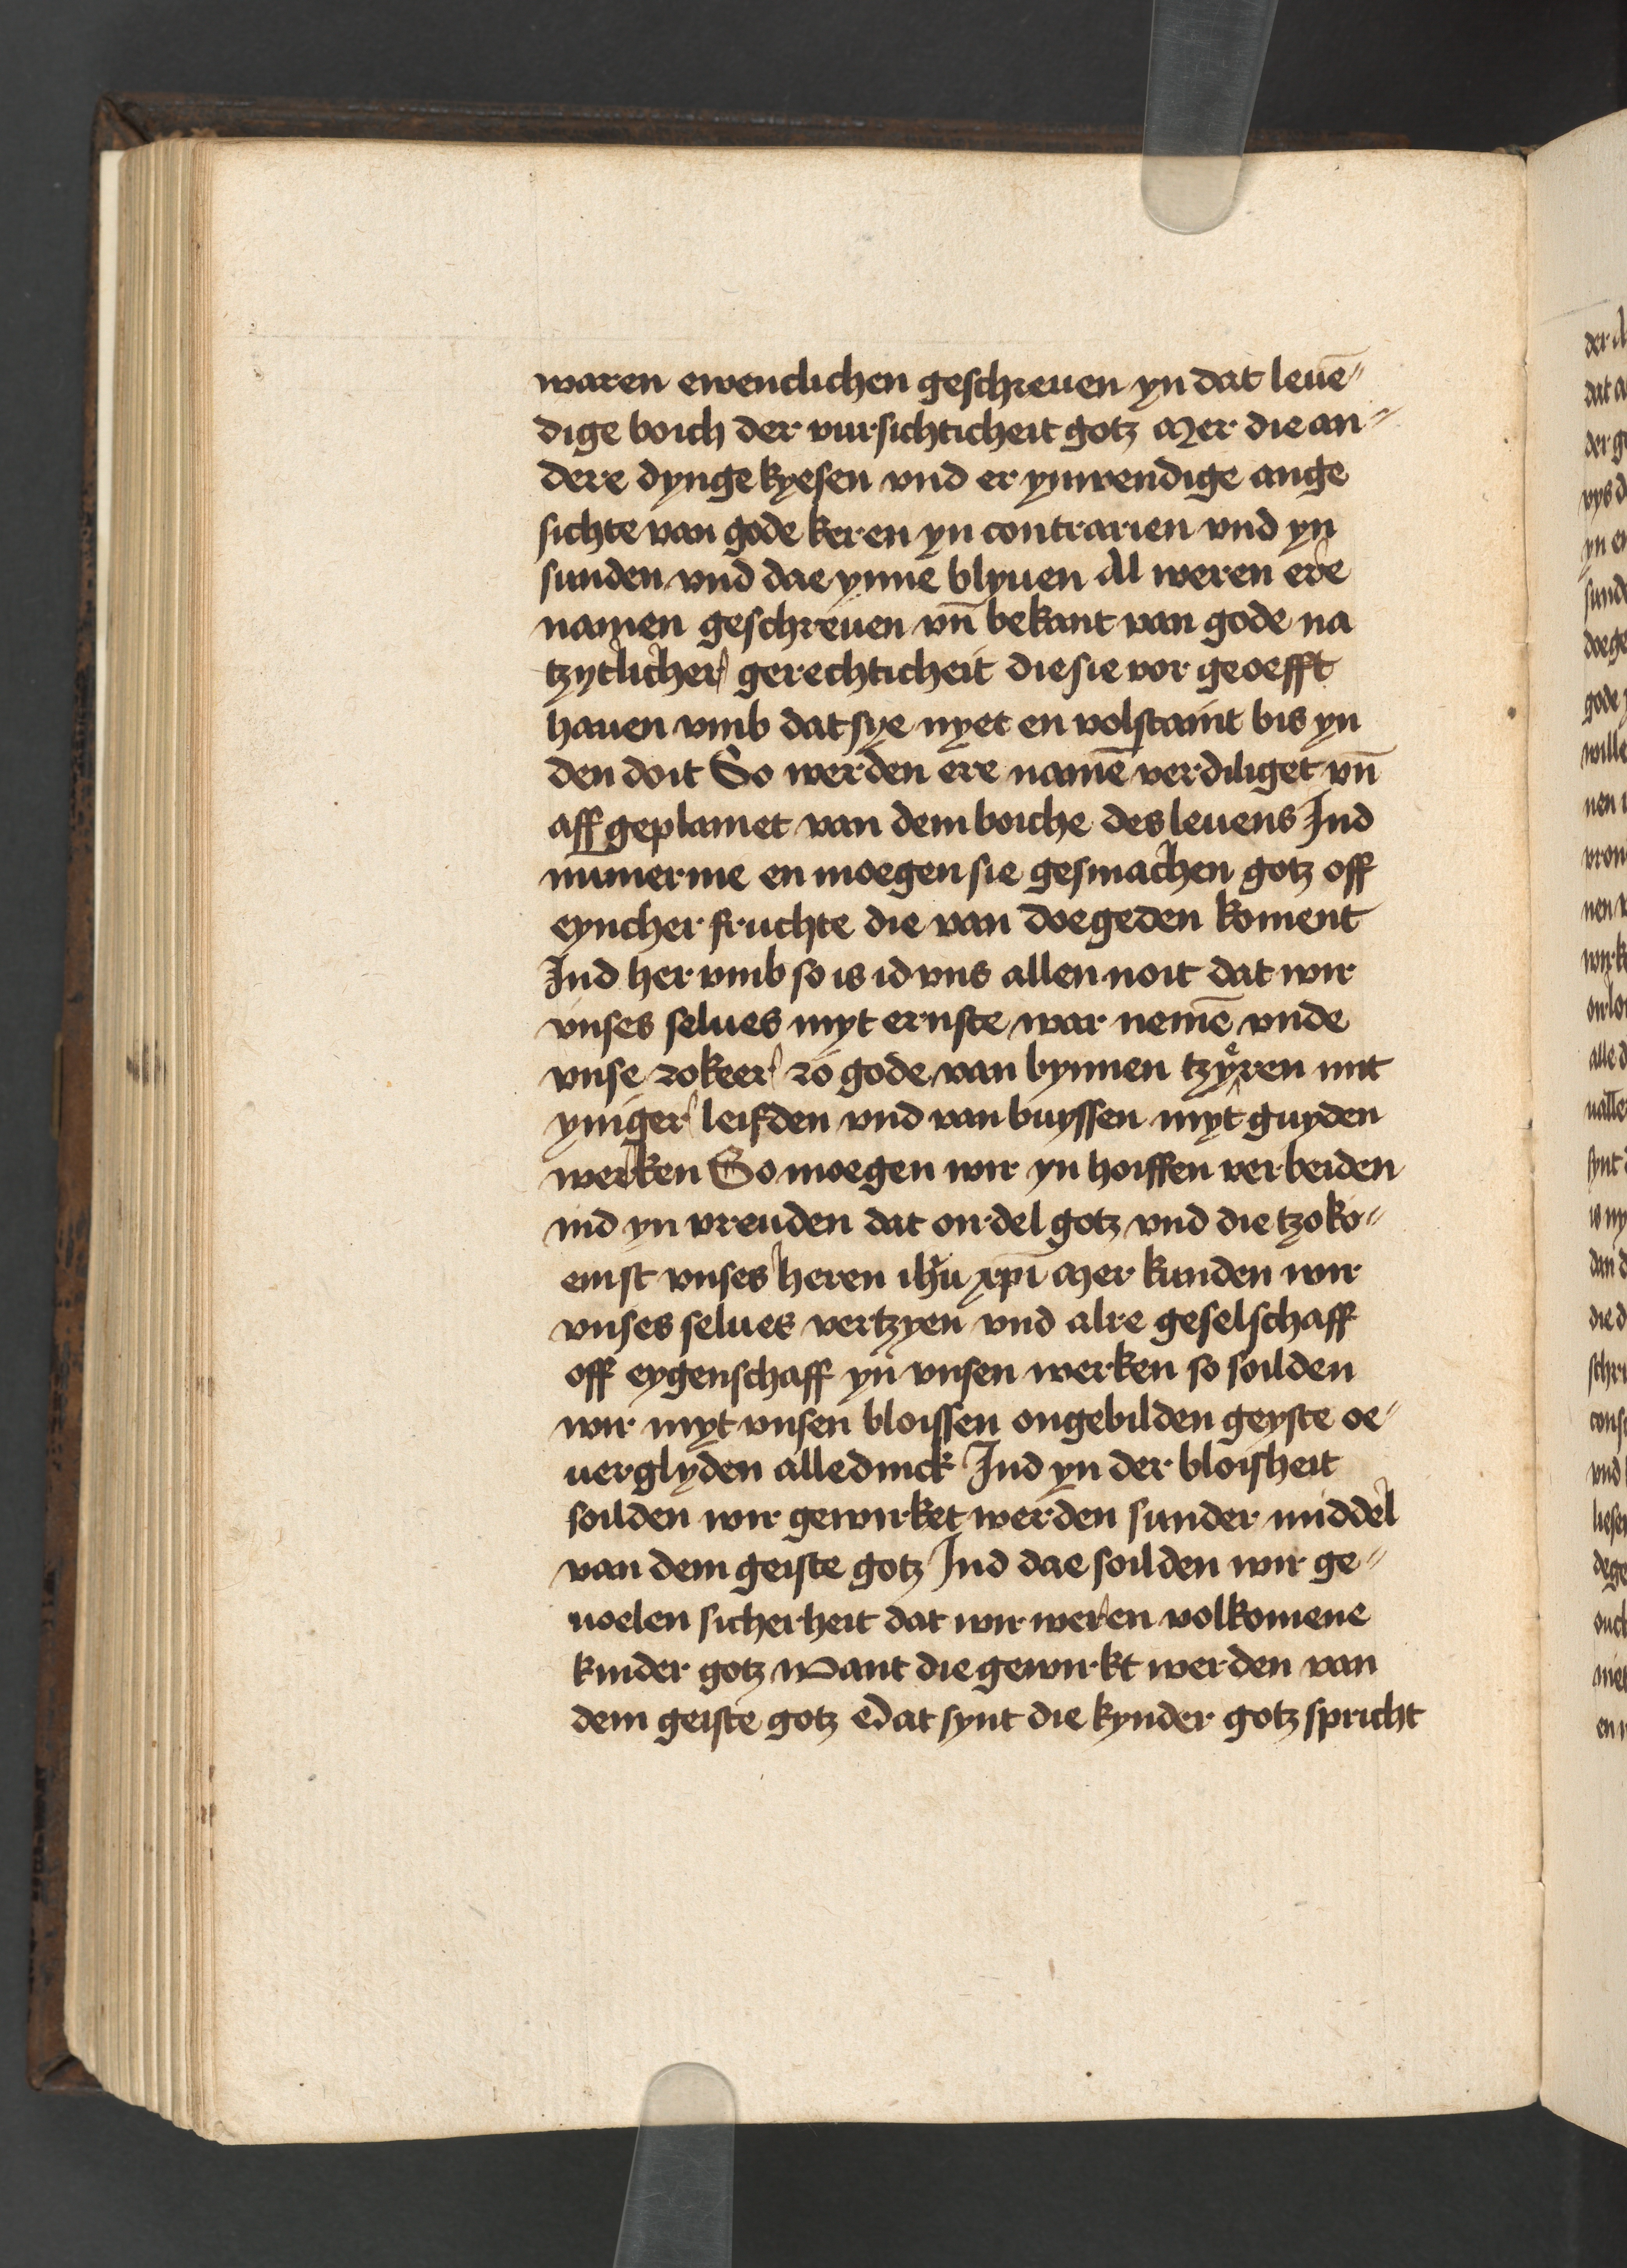 waren ewenclichen geschreuen yn dat leuē⸗
dige boich der vursichticheit gotz Mer die an⸗
dere dynge kyesen vnd er ynwendige ange
sichte van gode keren yn contrarien vnd yn
sunden vnd dae ynne blyuen Al weren ere
namen geschreuen vn̄ bekant van gode na
tzytlicher gerechticheit die sie vor geoefft
hauen vmb dat sye nyet en volstaint bis yn
den doit So werden ere namē verdiliget vn̄
aff geplamet van dem boiche des leuens Ind
nūmerme en moegen sie gesmachen gotz off
eyncher fruchte die van doegeden koment
Ind her vmb so is id vns allen noit dat wir
vnses selues myt ernste war nemē vnde
vnse zokeer zo gode van bynnen tzyͤren mit
yniger leifden vnd van buyssen myt guyden
werken So moegen wir yn hoiffen verbeiden
ind yn vreuden dat ordel gotz vnd die tzoko⸗
emst vnses heren ihu xpi Mer kunden wir
vnses selues vertzyen vnd alre geselschaff
off eygenschaff yn vnsen werken so soilden
wir myt vnsen bloissen ongebilden geyste oe⸗
uerglyden alledinck Ind yn der bloisheit
soilden wir gewirket werden sunder middel
van dem geiste gotz Ind dae soilden wir ge⸗
uoelen sicherheit dat wir weren volkomene
kinder gotz Want die gewirkt werden van
dem geiste gotz Dat synt die kynder gotz spricht